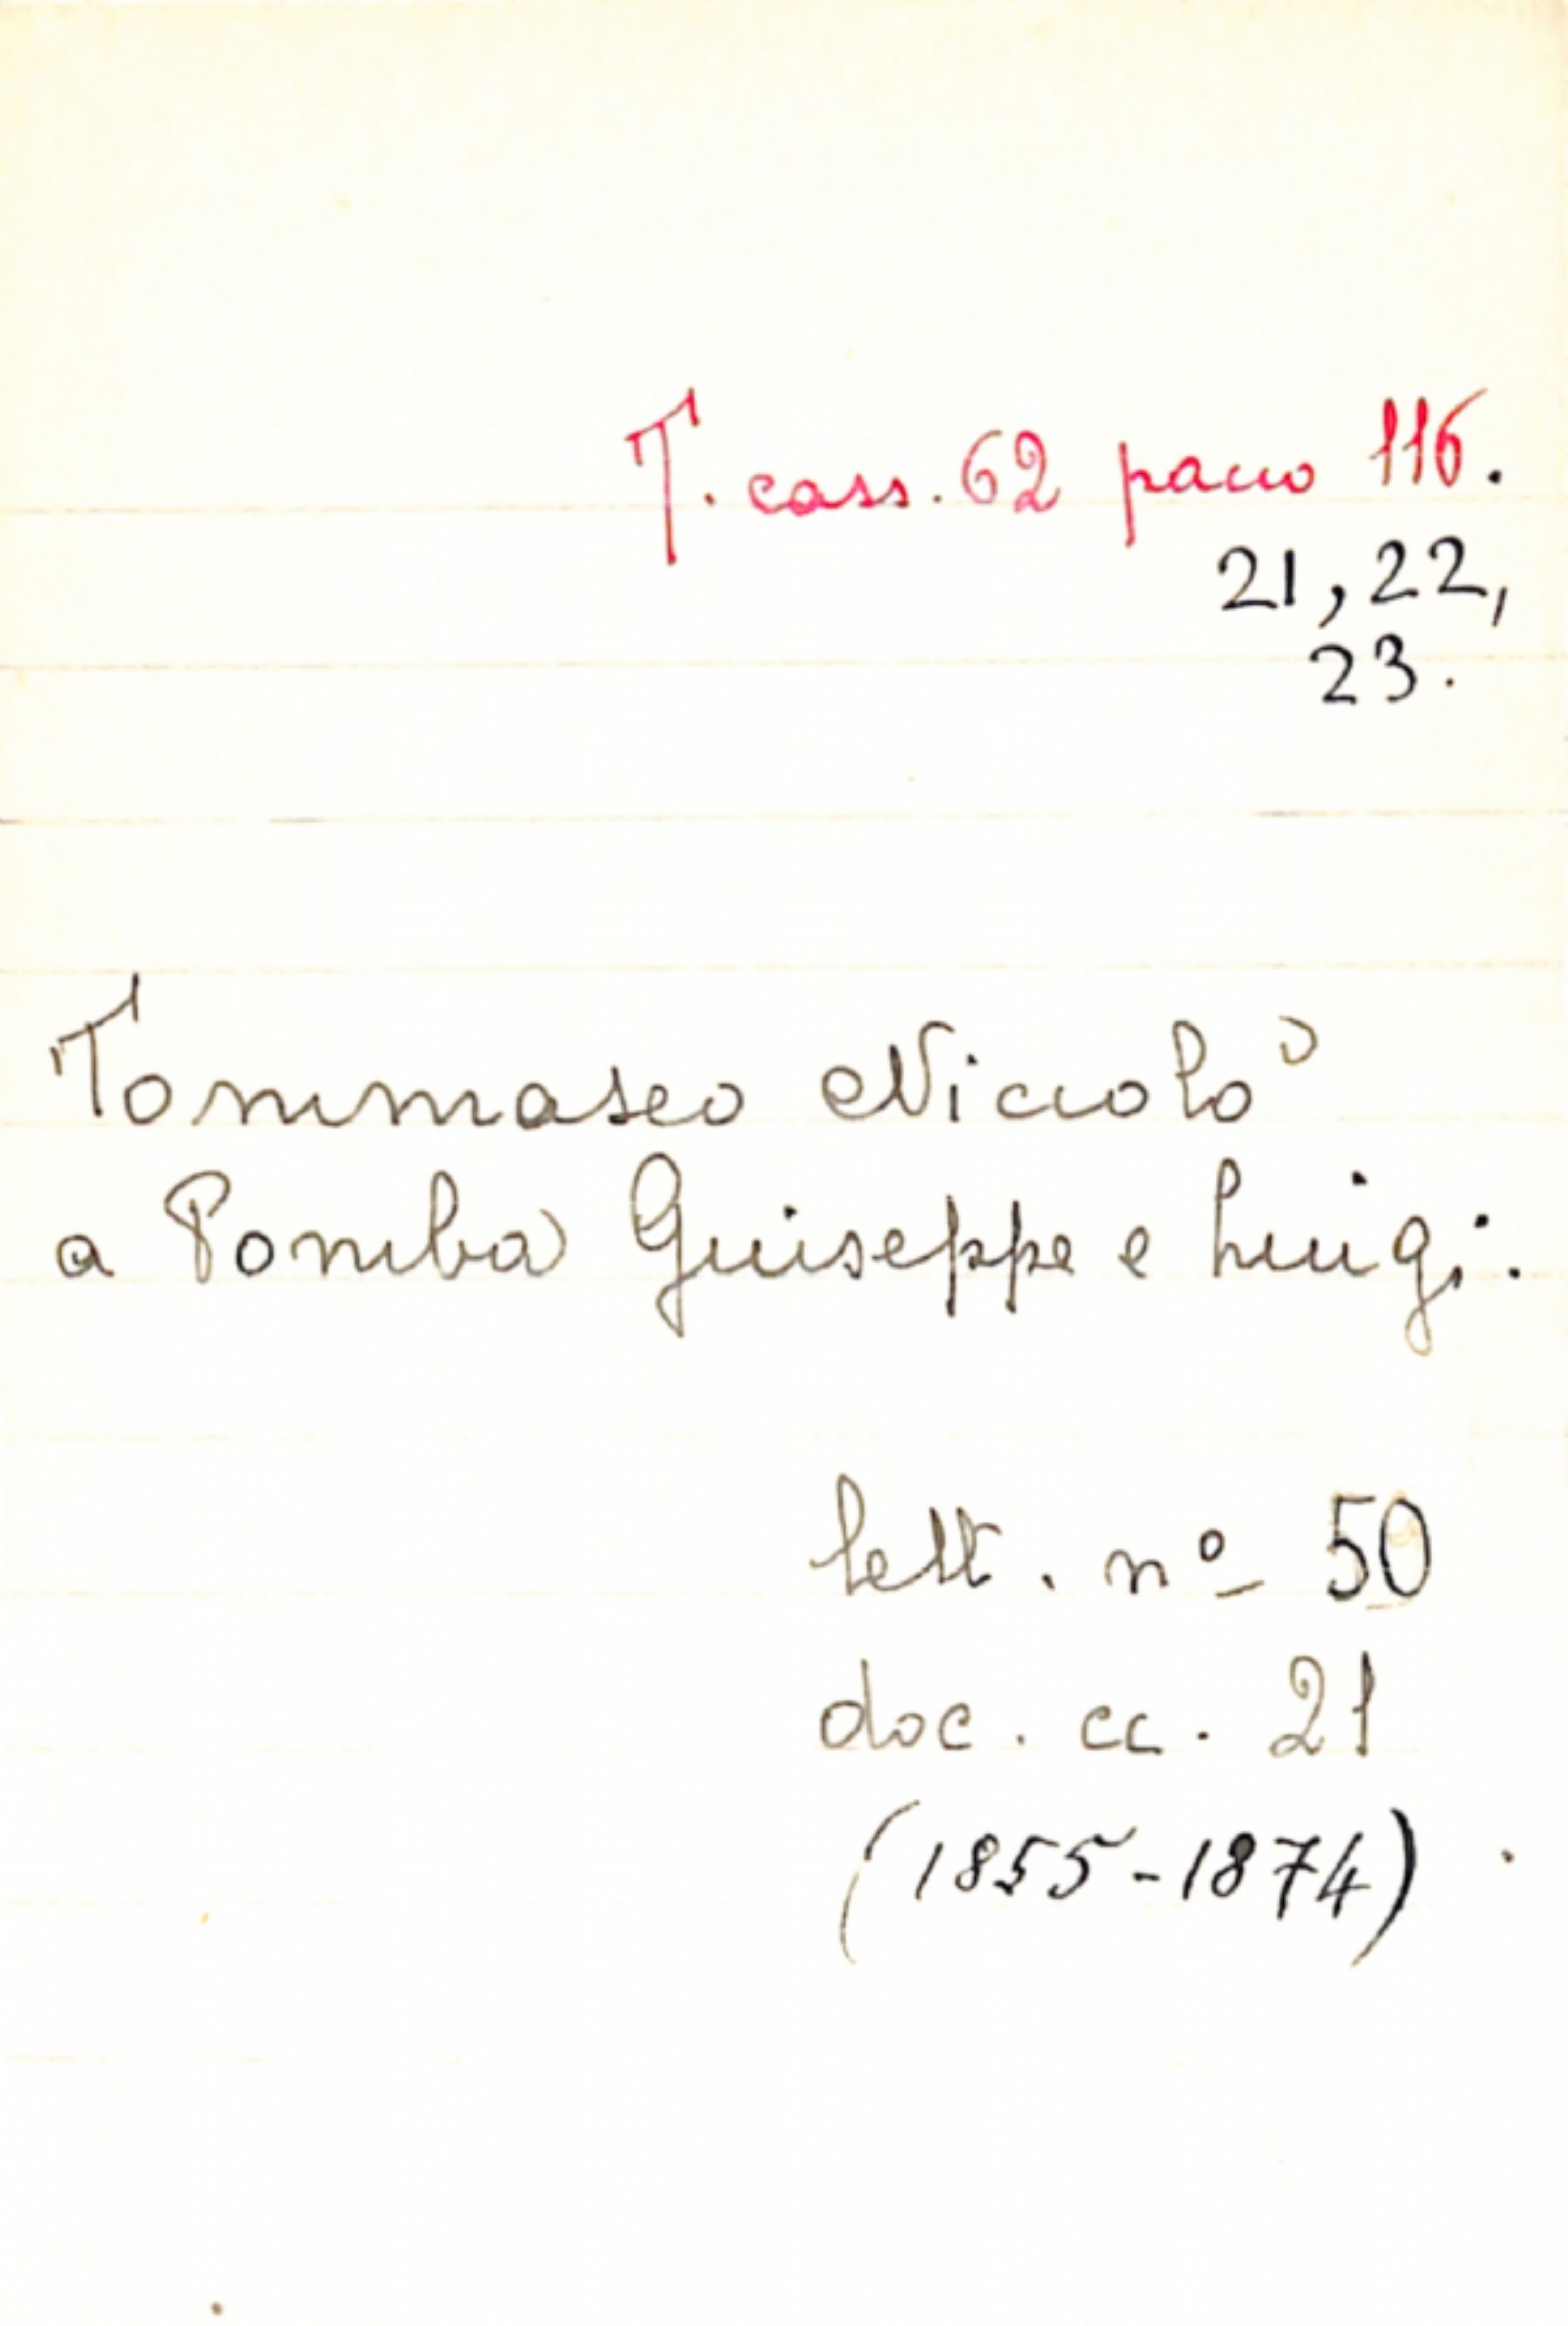 T. cass. 62 pacco 116.
21, 22,
23.
Tommaseo Niccolò
a Pomba Giuseppe e Luigi.
lett. nº 50
doc. cc. 21
(1855-1874)